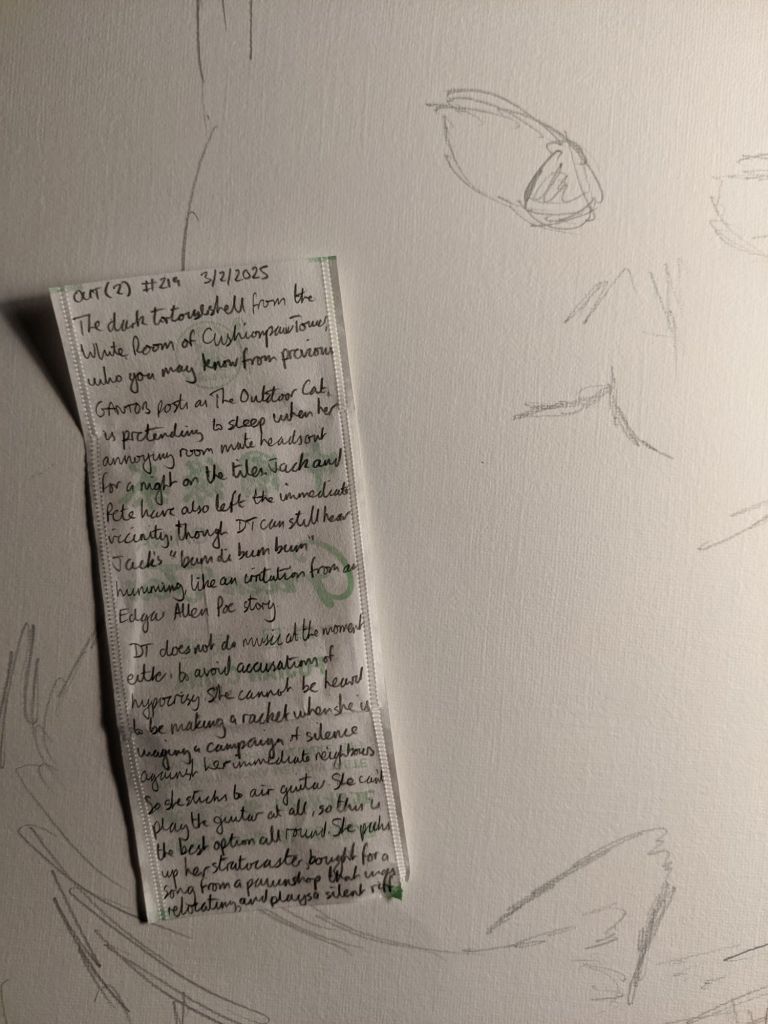 OUT (2) #219 3/2/2025
The dark tortoiseshell from the
White Room of Cushionpaw Tower,
who you may know from previous
GANTOB posts as The Outdoor Cat,
is pretending to sleep when her
annoying room mate heads out
for a night on the tiles. Jack and
Pete have also left the immediate
vicinity, though DT can still hear
Jack's "bum di bum bum"
humming, like an imitation from an
Edgar Allen Poe story
DT does not do music at the moment
either, to avoid accusations of
hypocrisy. She cannot be heard
to be making a racket when she is
waging a campaign of silence
against her immediate neighbours
So she sticks to air guitar. She can't
play the guitar at all, so this is
the best option all round. She picks
up her stratocaster bought for a
song from a pawnshop that was
relocating, and plays a silent riff